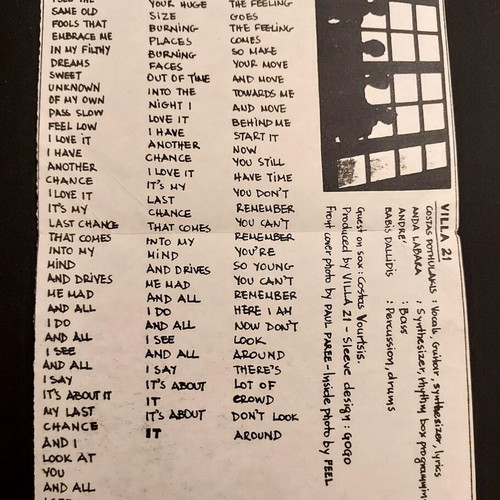 SAME OLD
FOOLS THAT
EMBRACE ME
IN MY FILTHY
DREAMS
SWEET
UNKNOWN
OF MY OWN
PASS SLOW
FEEL LOW
I LOVE IT
I HAVE
ANOTHER
CHANCE
I LOVE IT
IT'S MY
LAST CHANCE
THAT COMES
INTO MY
MIND
AND DRIVES
ME MAD
AND ALL
I DO
AND ALL
I SEE
AND ALL
I SAY
IT'S ABOUT IT
MY LAST
CHANCE
AND I
LOOK AT
YOU
AND ALL
YOUR HUGE
SIZE
BURNING
PLACES
BURNING
FACES
OUT OF TIME
INTO THE
NIGHT I
LOVE IT
I HAVE
ANOTHER
CHANCE
I LOVE IT
IT'S MY
LAST
CHANCE
THAT COMES
INTO MY
MIND
AND DRIVES
ME MAD
AND ALL
I DO
AND ALL
I SEE
AND ALL
I SAY
IT'S ABOUT
IT
IT'S ABOUT
IT
THE FEELING
GOES
THE FEELING
COMES
SO MAKE
YOUR MOVE
AND MOVE
TOWARDS ME
AND MOVE
BEHIND ME
START IT
NOW
YOU STILL
HAVE TIME
YOU DON'T
REMEMBER
YOU CAN'T
REMEMBER
YOU'RE
SO YOUNG
YOU CAN'T
REMEMBER
HERE I AM
NOW DON'T
LOOK
AROUND
THERE'S
LOT OF
CROWD
DON'T LOOK
AROUND
VILLA 21
COSTAS POTHULAKIS : Vocals, Guitar, synthesizer, lyrics
ANDA LABARA : Synthesizer, rhythm box
ANDRE' : Bass
BABIS DALLIDIS : Percussion, drums
Guest on sax : Costas Yourtsis.
Produced by VILLA 21 - Sleeve design : GOGO
Front cover photo by PAUL PAREE - Inside photo by FEEL